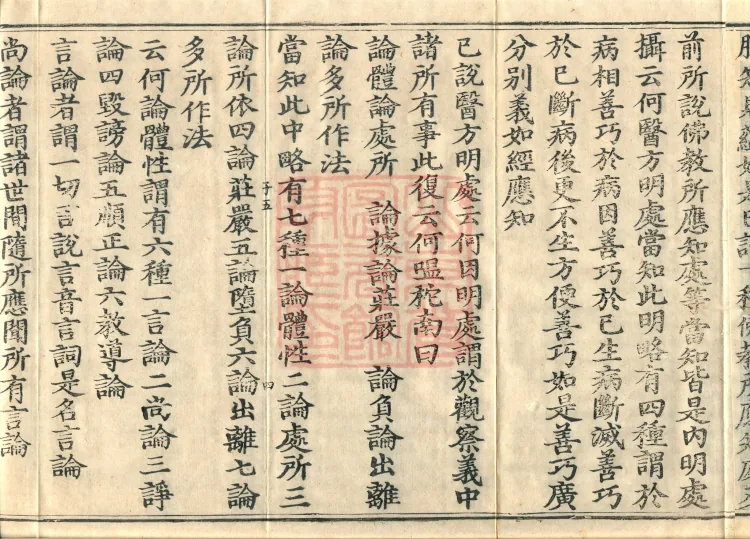 前所說佛教所應知處等當知皆是內明處
攝云何醫方明處當知此明略有四種謂於
病相善巧於病因善巧於已生病斷滅善巧
於已斷病後更不生方便善巧如是善巧廣
分別義如經應知
已說醫方明處云何因明處謂於觀察義中
諸所有事此復云何嗢柁南曰
論體論處所 論據論莊嚴 論負論出離
論多所作法
當知此中略有七種一論體性二論處所三
子五 四
論所依四論莊嚴五論墮負六論出離七論
多所作法
云何論體性謂有六種一言論二尚論三諍
論四毀謗論五順正論六教導論
言論者謂一切言說言音言詞是名言論
尚論者謂諸世間隨所應聞所有言論